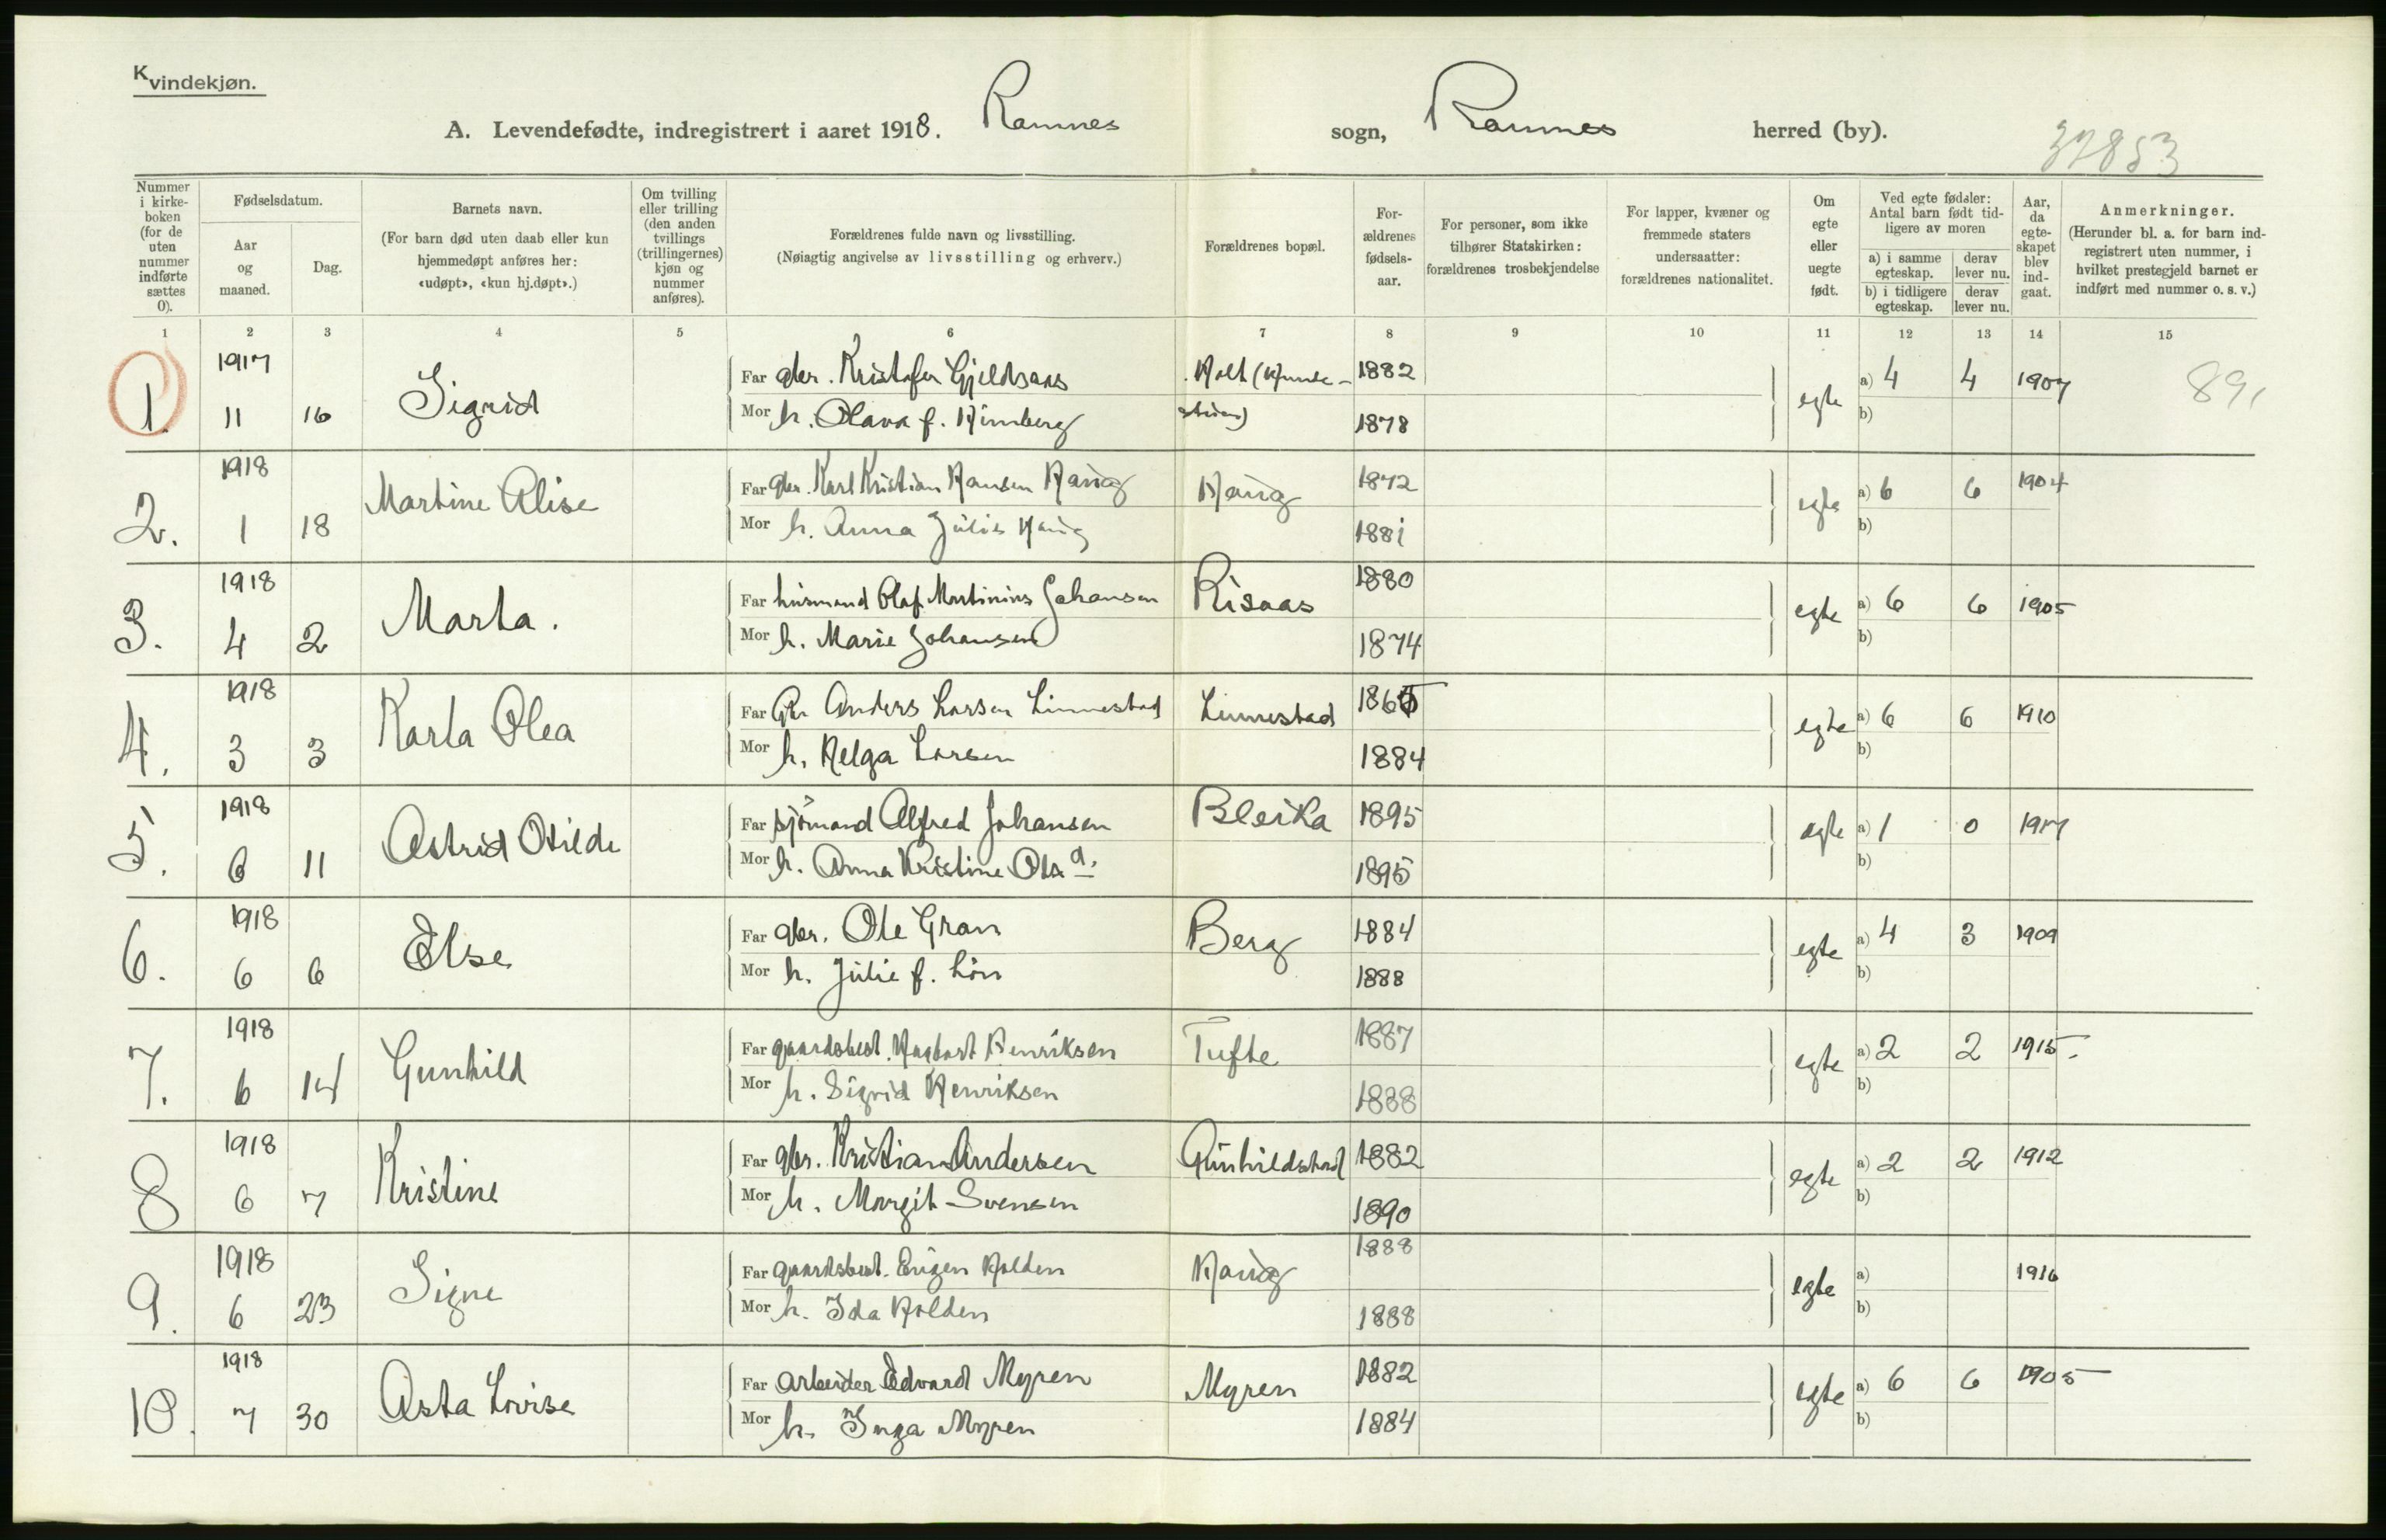 Kvindekjøn.
A. Levendefødte, indregistrert i aaret 1918. Ramnes sogn, Ramnes herred (by).
37853
Nummer i kirke-boken (for de uten nummer indførte sættes 0).
Fødselsdatum.
Aar og maaned.
Dag.
Barnets navn.
(For barn død uten daab eller kun hjemmedøpt anføres her: «udøpt», «kun hj.døpt».)
Om tvilling eller trilling (den anden tvillings (trillingernes) kjøn og nummer anføres).
Forældrenes fulde navn og livsstilling.
(Nøiagtig angivelse av livsstilling og erhverv.)
Forældrenes bopæl.
For-ældrenes fødsels-aar.
For personer, som ikke tilhører Statskirken: forældrenes trosbekjendelse
For lapper, kvæner og fremmede staters undersaatter: forældrenes nationalitet.
Om egte eller uegte født.
Ved egte fødsler: Antal barn født tid-ligere av moren
a) i samme egteskap. derav lever nu.
b) i tidligere egteskap. derav lever nu.
Aar, da egte-skapet blev ind-gaat.
Anmerkninger.
(Herunder bl. a. for barn ind-registrert uten nummer, i hvilket prestegjeld barnet er indført med nummer o. s. v.)
1 2 3 4 5 6 7 8 9 10 11 12 13 14 15
1. 1917 11 16 Sigrid
Far gbr. Kristofer Gjeldsaas Holt 1882 egte a) 4 4 1907 89,
Mor h. Olava f. Himberg 1878 b)
2. 1918 1 18 Martine Alise
Far gbr. Karl Kristian Hansen Haug Haug 1872 egte a) 6 6 1904
Mor h. Anna Julie Haug 1881 b)
3. 1918 4 2 Marta.
Far husmand Olaf Martinius Johansen Risaas 1880 egte a) 6 6 1905
Mor h. Marie Johansen 1874 b)
4. 1918 3 3 Karla Olea
Far Gbr Anders Larsen Linnestad Linnestad 1865 egte a) 6 6 1910
Mor h. Helga Larsen 1884 b)
5. 1918 6 11 Astrid Otilde
Far sjömand Alfred Johansen Bleika 1895 egte a) 1 0 1917
Mor h. Anna Kristine 1895 b)
6. 1918 6 6 Else
Far gbr. Ole Gran Berg 1884 egte a) 4 3 1909
Mor h. Julie f. Lön 1888 b)
7. 1918 6 14 Gunhild
Far gaardsbest. Hagbart Henriksen Tufte 1887 egte a) 2 2 1915
Mor h. Sigrid Henriksen 1888 b)
8 1918 6 7 Kristine
Far gbr. Kristian Andersen Gunhildstad 1882 egte a) 2 2 1912
Mor h. Margit Svensen 1890 b)
9. 1918 6 23 Signe
Far gaardsbest. Eugen Holden Haug 1888 egte a) 1916
Mor h. Ida Holden 1888 b)
10. 1918 7 30 Asta Lovise
Far arbeider Edvard Myren Myren 1882 egte a) 6 6 1905
Mor h. Inga Myren 1884 b)